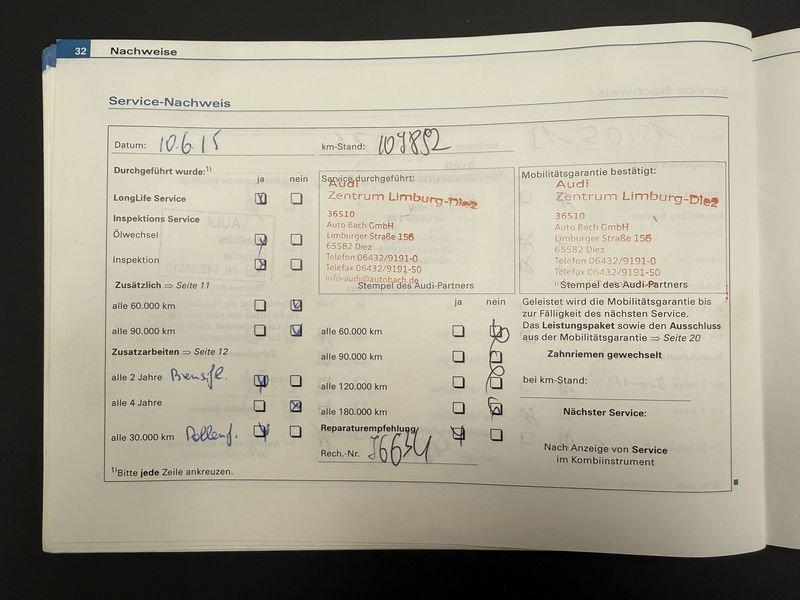 32 Nachweise
Service-Nachweis
Datum: 10.6.15
km-Stand: 107892
Durchgeführt wurde:¹⁾
ja nein
LongLife Service
Inspektions Service
Ölwechsel
Inspektion
Zusätzlich ⇒ Seite 11
alle 60.000 km
alle 90.000 km
Zusatzarbeiten ⇒ Seite 12
alle 2 Jahre Bremsfl.
alle 4 Jahre
alle 30.000 km Pollenf.
¹⁾Bitte jede Zeile ankreuzen.
Service durchgeführt:
Audi
Zentrum Limburg-Diez
36510
Auto Bach GmbH
Limburger Straße 156
65582 Diez
Telefon 06432/9191-0
Telefax 06432/9191-50
info-audi@autobach.de
Stempel des Audi-Partners
ja nein
alle 60.000 km
alle 90.000 km
alle 120.000 km
alle 180.000 km
Reparaturempfehlung
Rech.-Nr.
Mobilitätsgarantie bestätigt:
Audi
Zentrum Limburg-Diez
36510
Auto Bach GmbH
Limburger Straße 156
65582 Diez
Telefon 06432/9191-0
Telefax 06432/9191-50
Stempel des Audi-Partners
Geleistet wird die Mobilitätsgarantie bis
zur Fälligkeit des nächsten Service.
Das Leistungspaket sowie den Ausschluss
aus der Mobilitätsgarantie ⇒ Seite 20
Zahnriemen gewechselt
bei km-Stand:
Nächster Service:
Nach Anzeige von Service
im Kombiinstrument